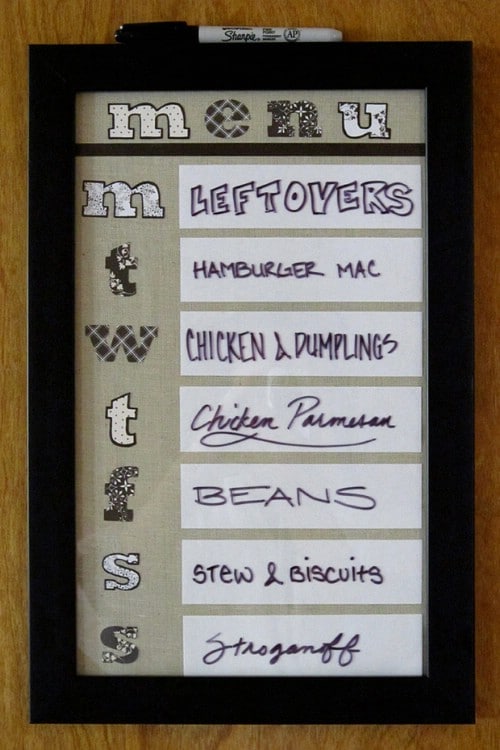 Sharpie AP
menu
m LEFTOVERS
t HAMBURGER MAC
w CHICKEN & DUMPLINGS
t Chicken Parmesan
f BEANS
s STEW & BISCUITS
s Stroganoff